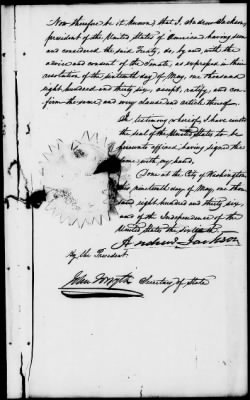 Now therefore be it known, that I, Andrew Jackson,
president of the United States of America, having seen
and considered the said Treaty, do, by and with the
advice and consent of the Senate, as expressed in their
resolution of the fifteenth day of May, one thousand
eight hundred and thirty six, accept, ratify, and con-
firm the same, and every clause and article thereof.
In testimony whereof, I have caused
the seal of the United States to be
hereunto affixed having signed the
same with my hand.
Done at the City of Washington
this nineteenth day of May, one thou-
sand eight hundred and thirty six,
and of the Independence of the
United States the sixtieth.
Andrew Jackson
By the President.
John Forsyth Secretary of State